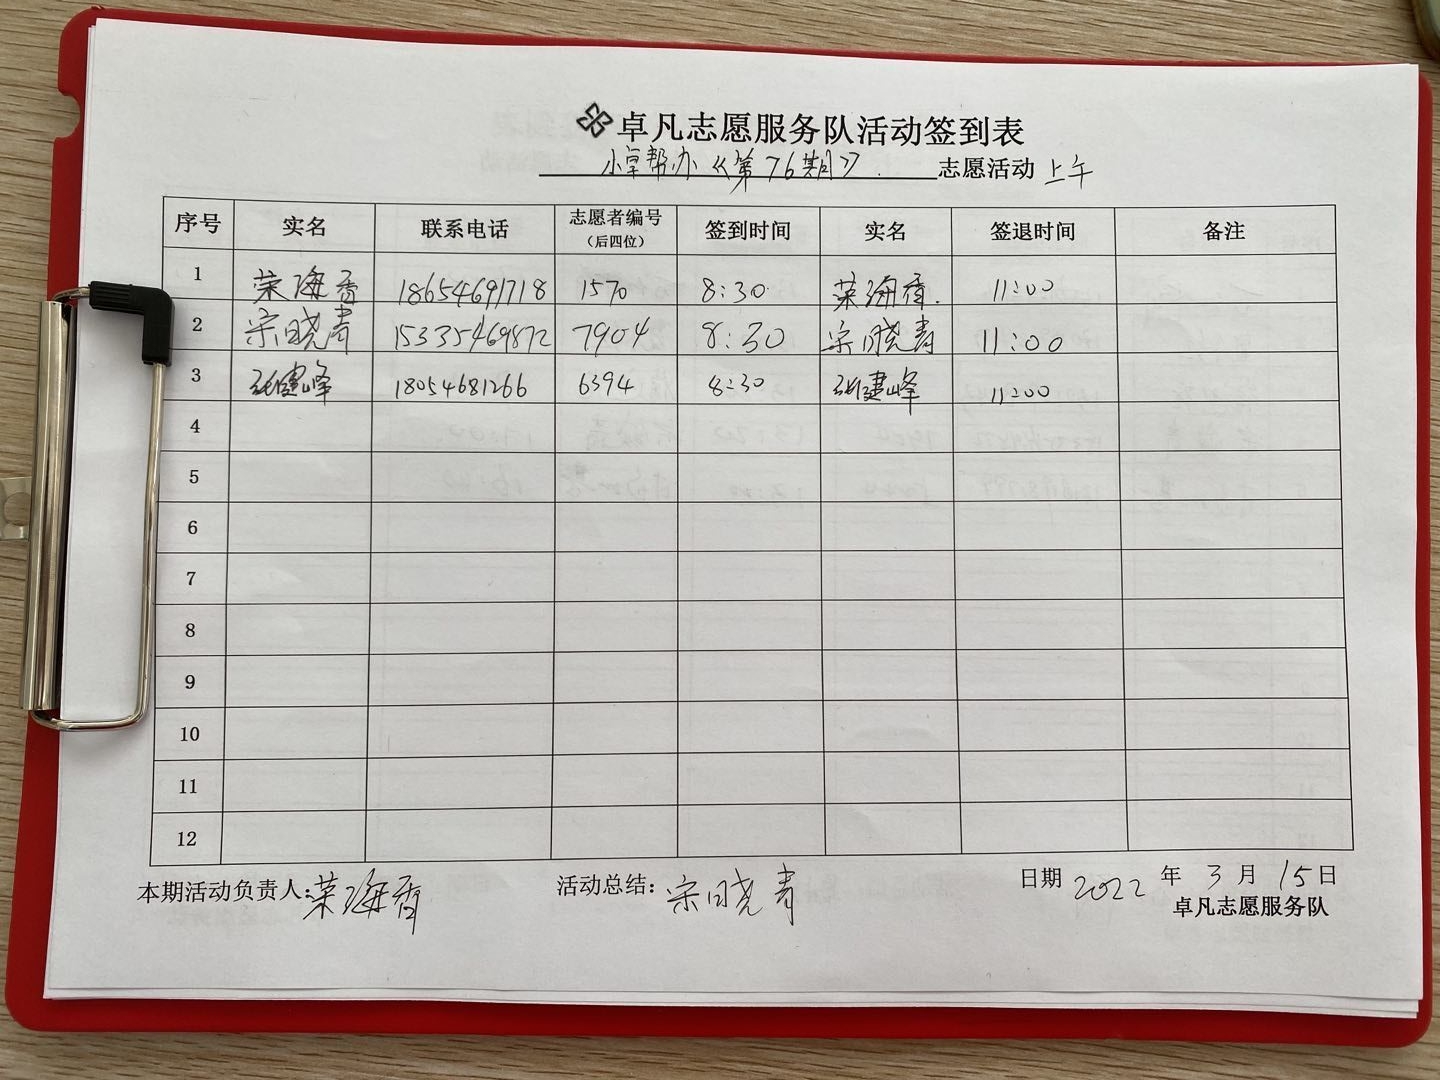 卓凡志愿服务队活动签到表
小卓帮办《第76期》 志愿活动 上午
序号 实名 联系电话 志愿者编号（后四位） 签到时间 实名 签退时间 备注
1 荣海香 18654691718 1570 8:30 荣海香. 11:00
2 宋晓青 15335469872 7904 8:30 宋晓青 11:00
3 张建峰 18054681266 6394 8:30 张建峰 11:00
4
5
6
7
8
9
10
11
12
本期活动负责人:荣海香 活动总结:宋晓青 日期 2022 年 3 月 15日
卓凡志愿服务队